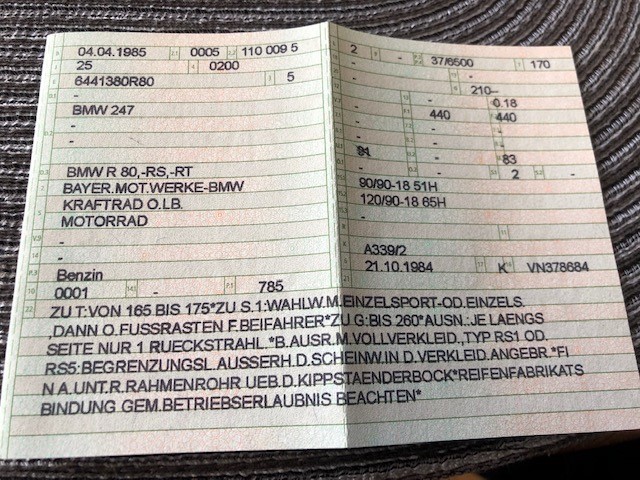 04.04.1985 0005 110 009 5
25 0200
6441380R80 5
-
BMW 247
-
-
-
BMW R 80,-RS,-RT
BAYER.MOT.WERKE-BMW
KRAFTRAD O.LB.
MOTORRAD
-
-
Benzin
0001 - 785
2 - 37/6500 170
-
- -
- 210--
- - 0.18
- 440 440
- - -
91 - 83
- - 2 -
90/90-18 51H
120/90-18 65H
-
-
A339/2
21.10.1984 K VN378684
ZU T:VON 165 BIS 175*ZU S.1:WAHLW.M.EINZELSPORT-OD.EINZELS.
,DANN O.FUSSRASTEN F.BEIFAHRER*ZU G:BIS 260*AUSN.:JE LAENGS
SEITE NUR 1 RUECKSTRAHL.*B.AUSR.M.VOLLVERKLEID.,TYP RS1 OD.
RS5:BEGRENZUNGSL.AUSSERH.D.SCHEINW.IN D.VERKLEID.ANGEBR.*FI
N A.UNT.R.RAHMENROHR UEB.D.KIPPSTAENDERBOCK*REIFENFABRIKATS
BINDUNG GEM.BETRIEBSERLAUBNIS BEACHTEN*